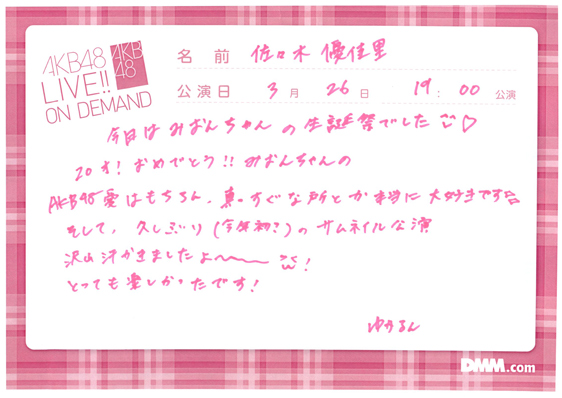 AKB48
LIVE!!
ON DEMAND
AKB
48
名前 佐々木 優佳里
公演日 3月 26日 19:00 公演
今日はみおんちゃんの生誕祭でした♡
20才!おめでとう!!みおんちゃんの
AKB48愛はもちろん、真っすぐな所とか本当に大好きです
そして、久しぶり(今年初?)のサムネイル公演
沢山汗かきましたよ〜!
とっても楽しかったです!
ゆうるん
DMM.com